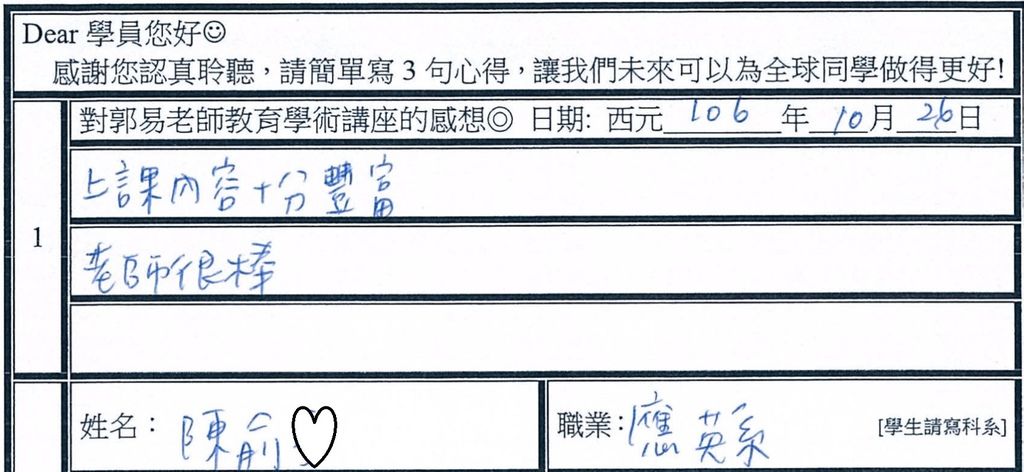 Dear 學員您好☺
感謝您認真聆聽，請簡單寫 3 句心得，讓我們未來可以為全球同學做得更好!
對郭易老師教育學術講座的感想◎ 日期: 西元 106 年 10 月 26 日
上課內容十分豐富
1
老師很棒
姓名： 陳俞♡
職業: 應英系 [學生請寫科系]